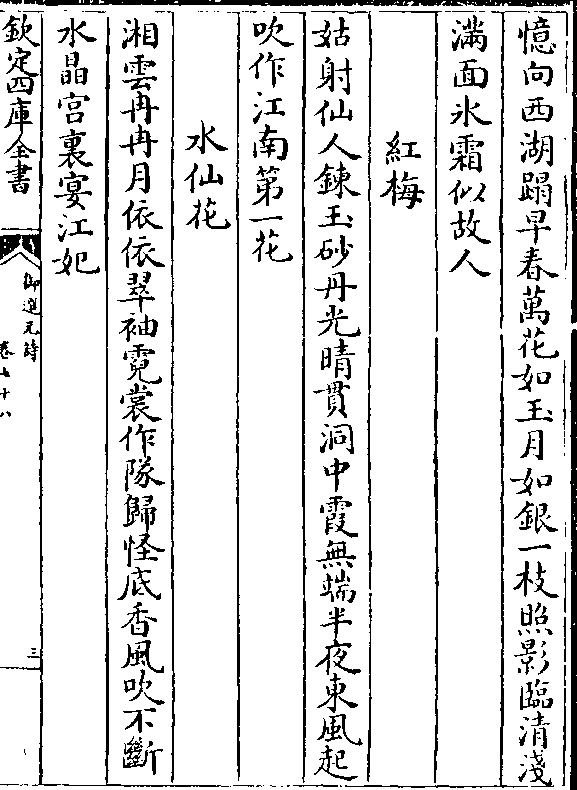 憶向西湖蹋早春萬花如玉月如銀一枝照影臨清淺
滿面氷霜似故人
紅梅
姑射仙人鍊玉砂丹光晴貫洞中霞無端半夜東風起
吹作江南第一花
水仙花
湘雲冉冉月依依翠袖霓裳作隊歸怪底香風吹不斷
水晶宫裏宴江妃
欽定四庫全書
御選元詩
卷七十八
三